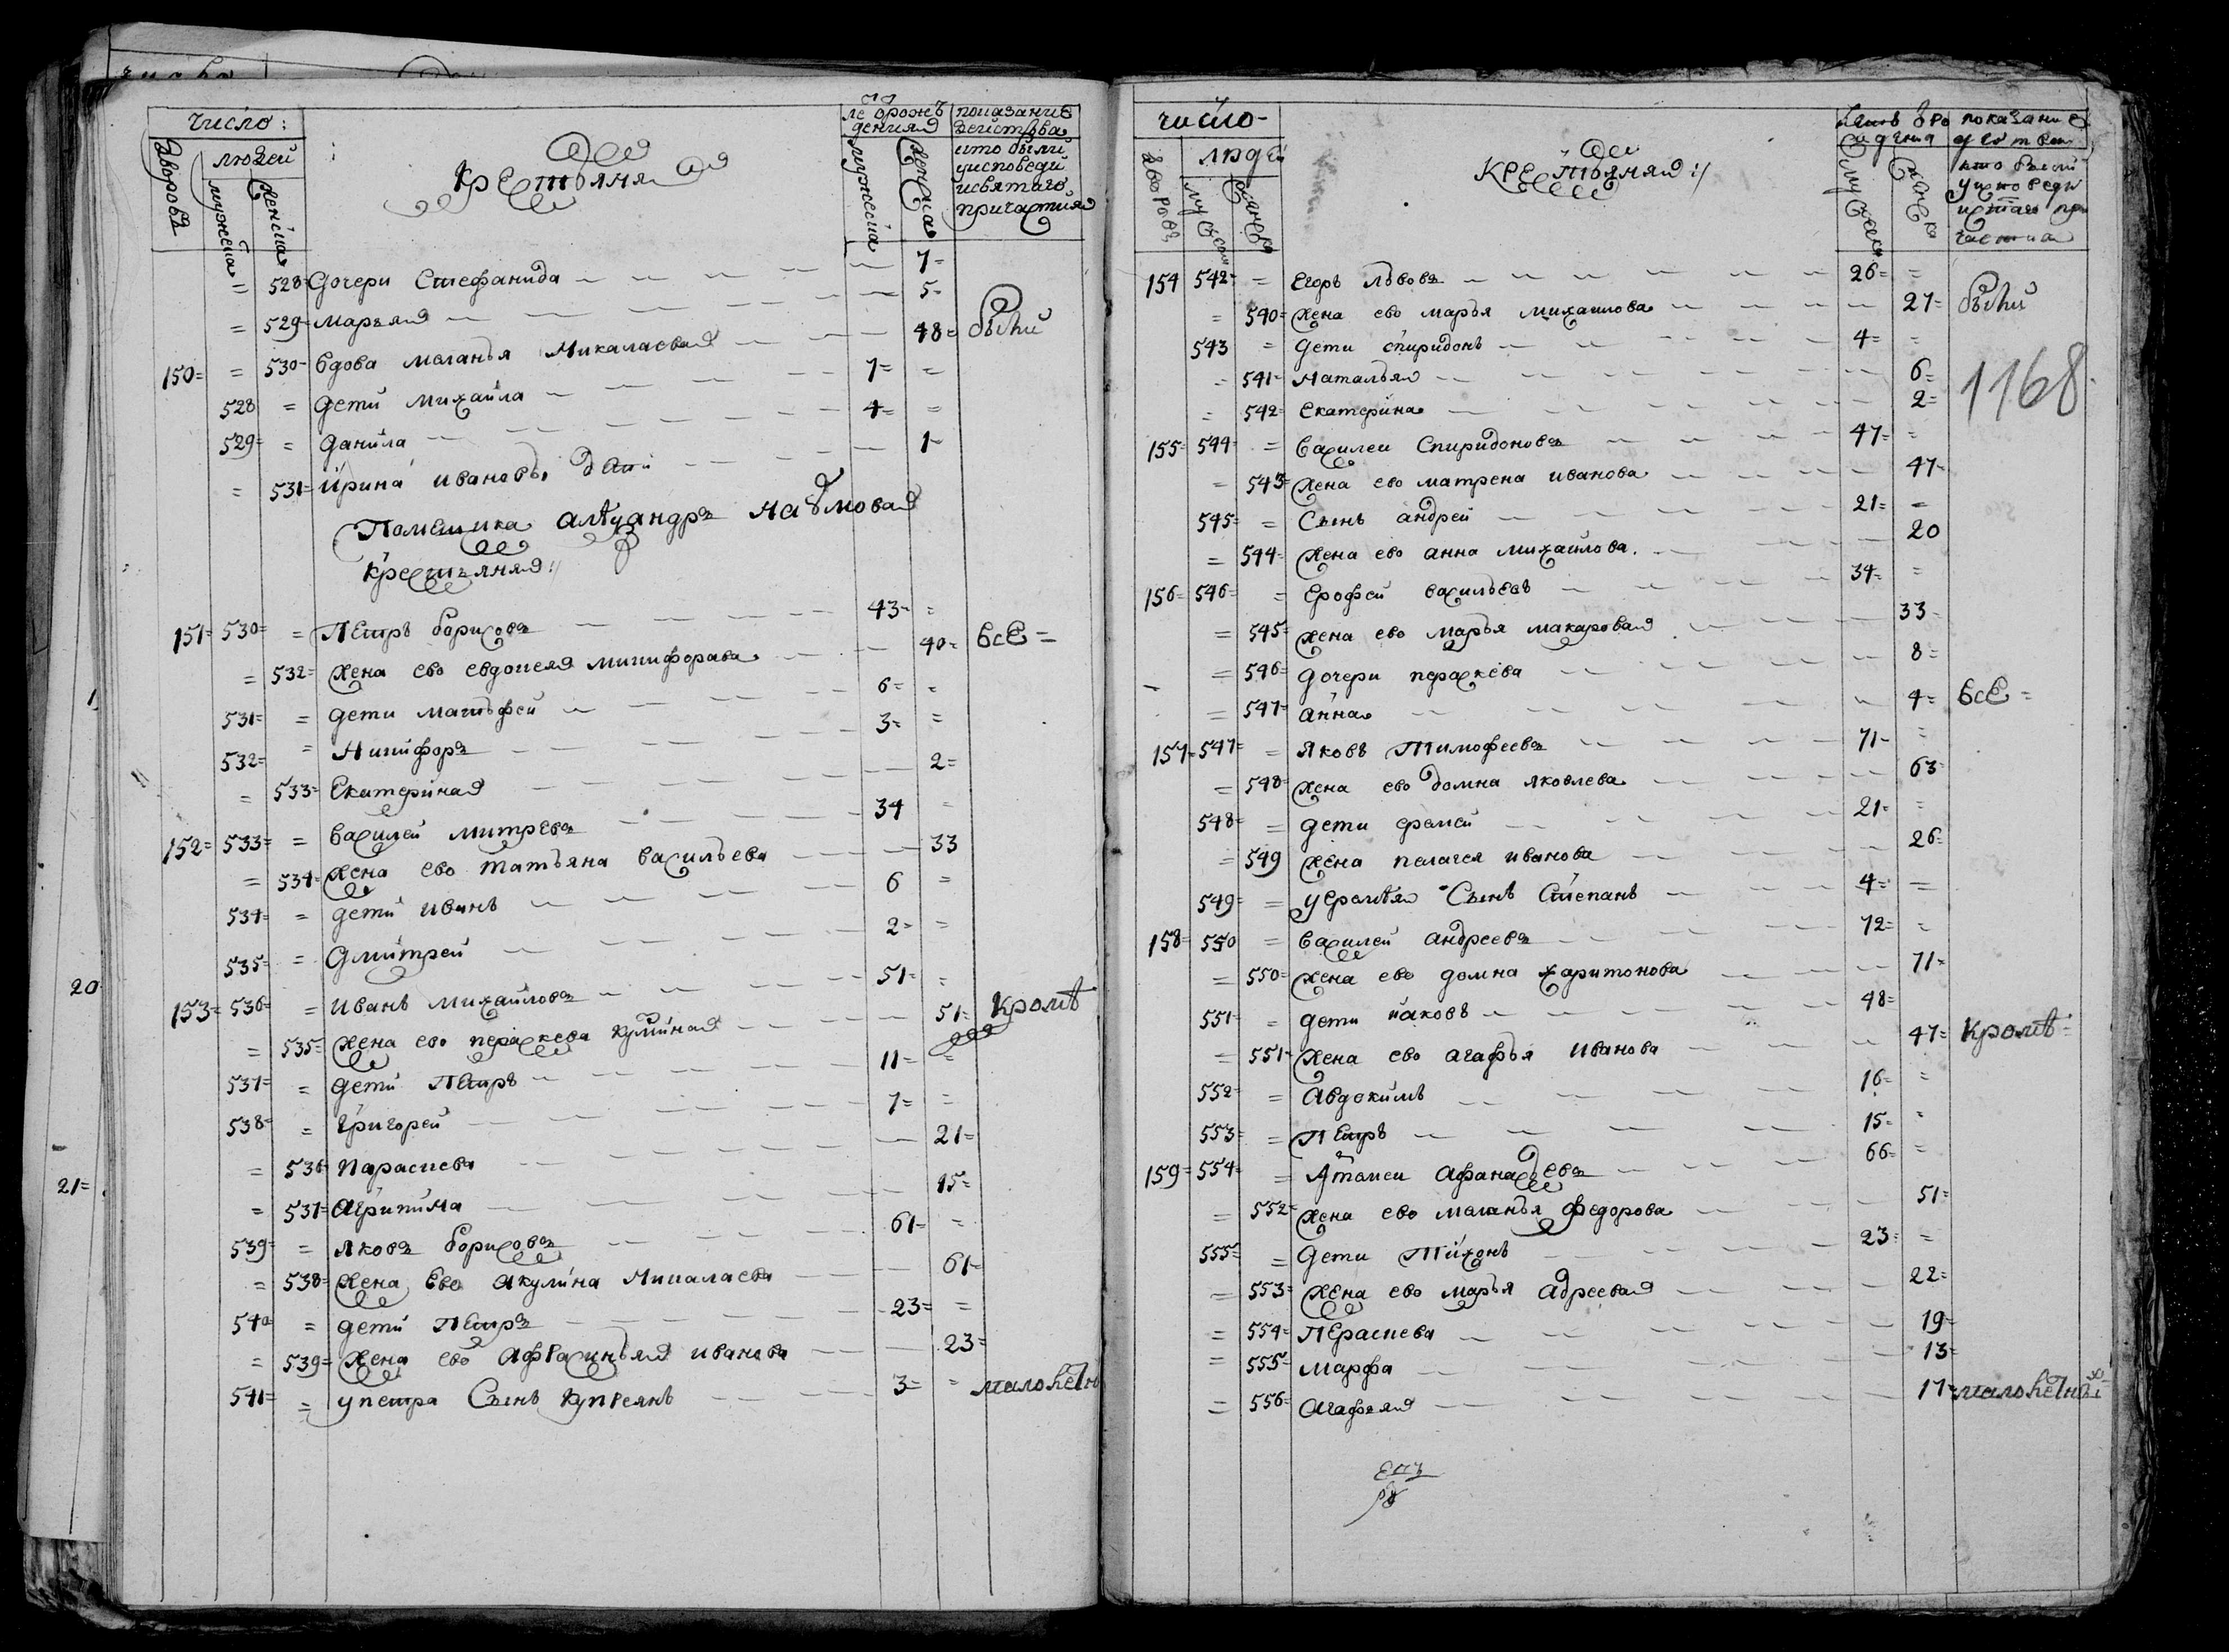 число:
дворовъ
людей
мужеска
женска
крестьяня
ле ѿ рожъ
дения
мужеска
женска
показание
действа
кто были
уисповеди
исвятаго
причастия
= 528= Дочери Стефанида 7=
= 529= Марья 5= были
150= = 530= Вдова Маланья Микалаевая 48=
528 = дети Михайла 7= =
529= = Данила 4= =
= 531= Ирина 1=
Помещика
крестьяня
151= 530= = Петръ Борисовъ 43= =
= 532= Жена ево Евдокея Микифорава 40= Все=
531= = дети Матьфей 6= =
532= = Никифоръ 3= =
= 533= Екатериная 2=
152= 533= = Василей Митревъ 34 =
= 534= Жена ево Татьяна Васильева 33
534= = дети Иванъ 6 =
535= = Дмитрей 2= =
153= 536= = Иванъ Михайловъ 51= =
= 535= Жена ево Пераскева Кузминая 51= Кромѣ
537= = дети Петръ 11= =
538= = Григорей 7= =
= 536 Параскева 21=
= 537= Агрипина 15=
539= = Яковъ Борисовъ 61= =
= 538= Жена Ево Акулина Микалаева 61=
540 = дети Петръ 23= =
= 539= Жена ево Афрасинья Иванова 23=
541= = у Петра Сынъ Купреянъ 3= = малолетн
20
21=
число
дворовъ
людей
мужеска
женска
крестьяня
летъ ѿ ро
ждения
мужеска
женска
показание
действа
кто были
уисповеди
истаго при
частиа
154 542= = Егоръ Львовъ 26= =
= 540= Жена ево Марья Михаилова 27= были
543 = дети Спиридонъ 4= =
= 541= Наталья 6=
1168
= 542= Екатерина 2=
155= 544= = Василеи Спиридоновъ 47= =
= 543= Жена ево Матрена Иванова 47=
545= = Сынъ Андрей 21= =
= 544= Жена ево Анна Михаилова 20
156= 546= = Ерофей Васильевъ 34= =
= 545= Жена ево Марья Макаровая 33=
= 546= Дочери Пераскева 8=
= 547= Анна 4= Все=
157= 547= = Яковъ Тимофеевъ 71= =
= 548= Жена ево Домна Яковлева 63=
548= = дети 21= =
= 549 Жена Пелагея Иванова 26=
549= = Сынъ Степанъ 4= =
158= 550 = Василей Андреевъ 72= =
= 550= Жена ево Домна Харитонова 71=
551= = дети Иаковъ 48=
= 551= Жена ево Агафья Иванова 47= Кромѣ=
552= = Авдокимъ 16= =
553= = Петръ 15= =
159= 554= = Афанасьевъ 66= =
= 552= Жена ево Маланья Федорова 51=
555= = Дети Тихонъ 23= =
= 553= Жена ево Марья Адреевая 22=
= 554= Пераскева 19=
= 555= Марфа 13=
= 556= Агафья 17= малолетны